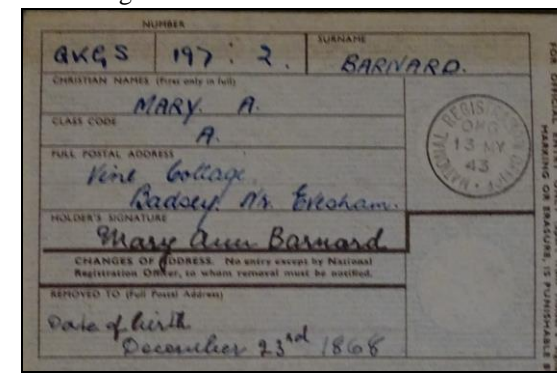 NUMBER
SURNAME
QKGS 197 : 2. BARNARD.
CHRISTIAN NAMES (First only in full)
MARY. A.
CLASS CODE
A.
FULL POSTAL ADDRESS
Vine Cottage
Badsey. Nr. Evesham.
HOLDER'S SIGNATURE
Mary Ann Barnard
CHANGES OF ADDRESS. No entry except by National
Registration Officer, to whom removal must be notified.
REMOVED TO (Full Postal Address)
Date of birth
December 23rd 1868
NATIONAL REGISTRATION
13 MY
43
MARKING OR ERASURE, IS PUNISHABLE